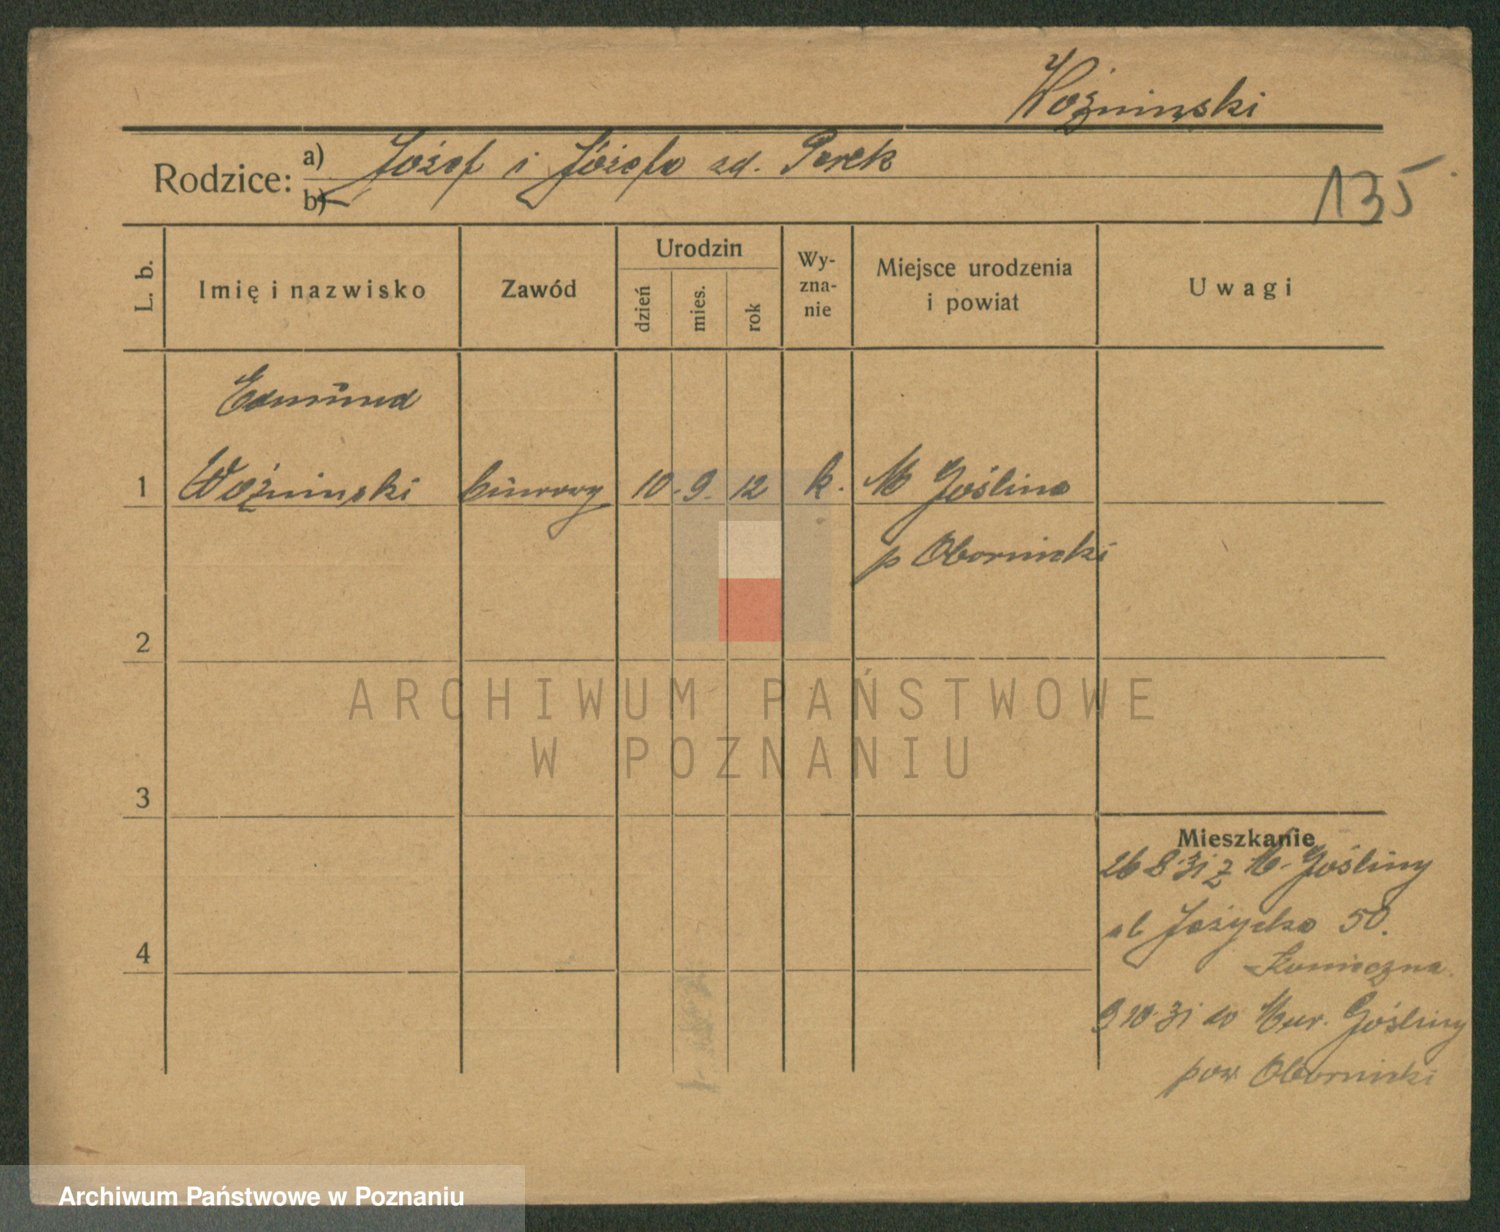 Woźniński
Rodzice: a) Józef i Józefa zd. Perek
b)
135
L. b.
Imię i nazwisko
Zawód
Urodzin
dzień
mies.
rok
Wy-
zna-
nie
Miejsce urodzenia
i powiat
Uwagi
Edmund
1 Woźniński biurowy 10. 9. 12 k. M Goślina
p Obornicki
2
3
4
Mieszkanie
26 8 31 z M. Gośliny
ul 50.
9 10 31 do Mur. Gośliny
pow Obornicki
ARCHIWUM PAŃSTWOWE
W POZNANIU
Archiwum Państwowe w Poznaniu